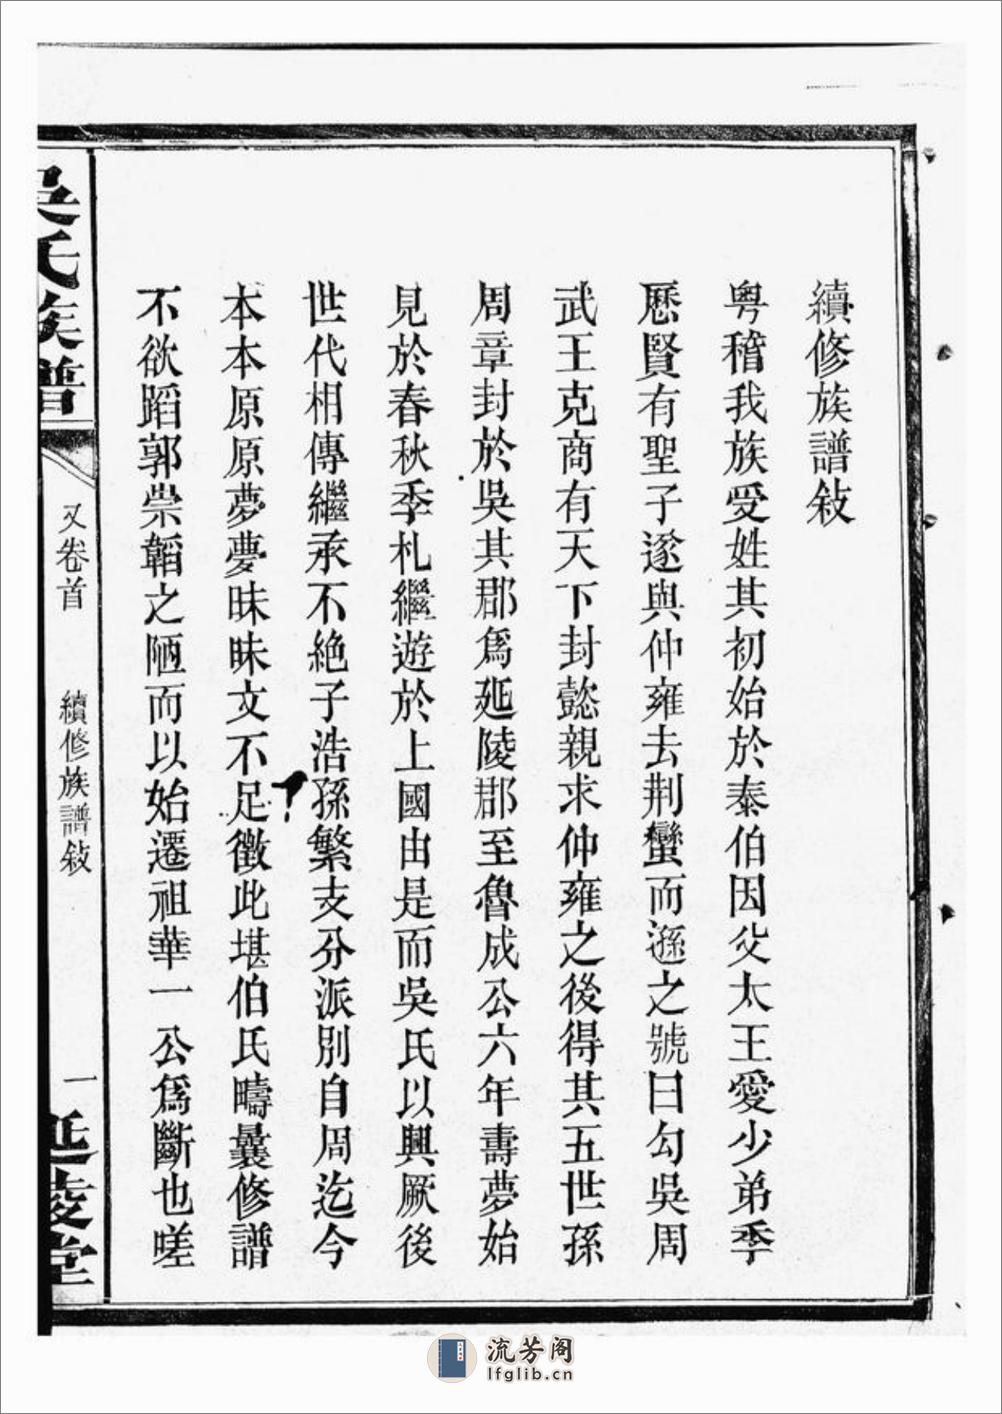 續修族譜敍
粤稽我族受姓其初始於泰伯因父太王愛少弟季
歷賢有聖子遂與仲雍去荆蠻而遜之號曰勾吳周
武王克商有天下封懿親求仲雍之後得其五世孫
周章封於吳其郡爲延陵郡至魯成公六年壽夢始
見於春秋季札繼遊於上國由是而吳氏以興厥後
世代相傳繼承不絶子浩孫繁支分派別自周迄今
本本原原夢夢昧昧文不足徵此堪伯氏疇曩修譜
不欲蹈郭崇韜之陋而以始遷祖華一公爲斷也嗟
吳氏族譜
又卷首
續修族譜敍
一
延陵堂
流芳阁
lfglib.cn